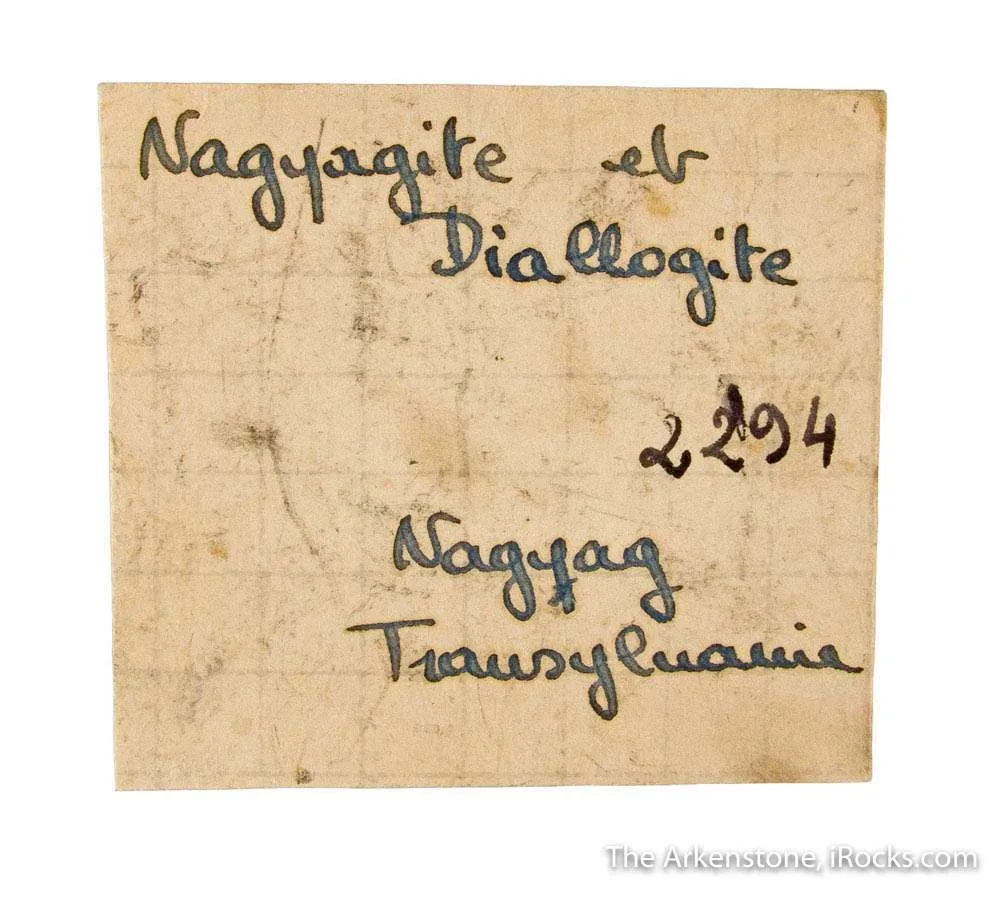 Nagyagite et
Diallogite
2294
Nagyag
Transylvanie
The Arkenstone, iRocks.com